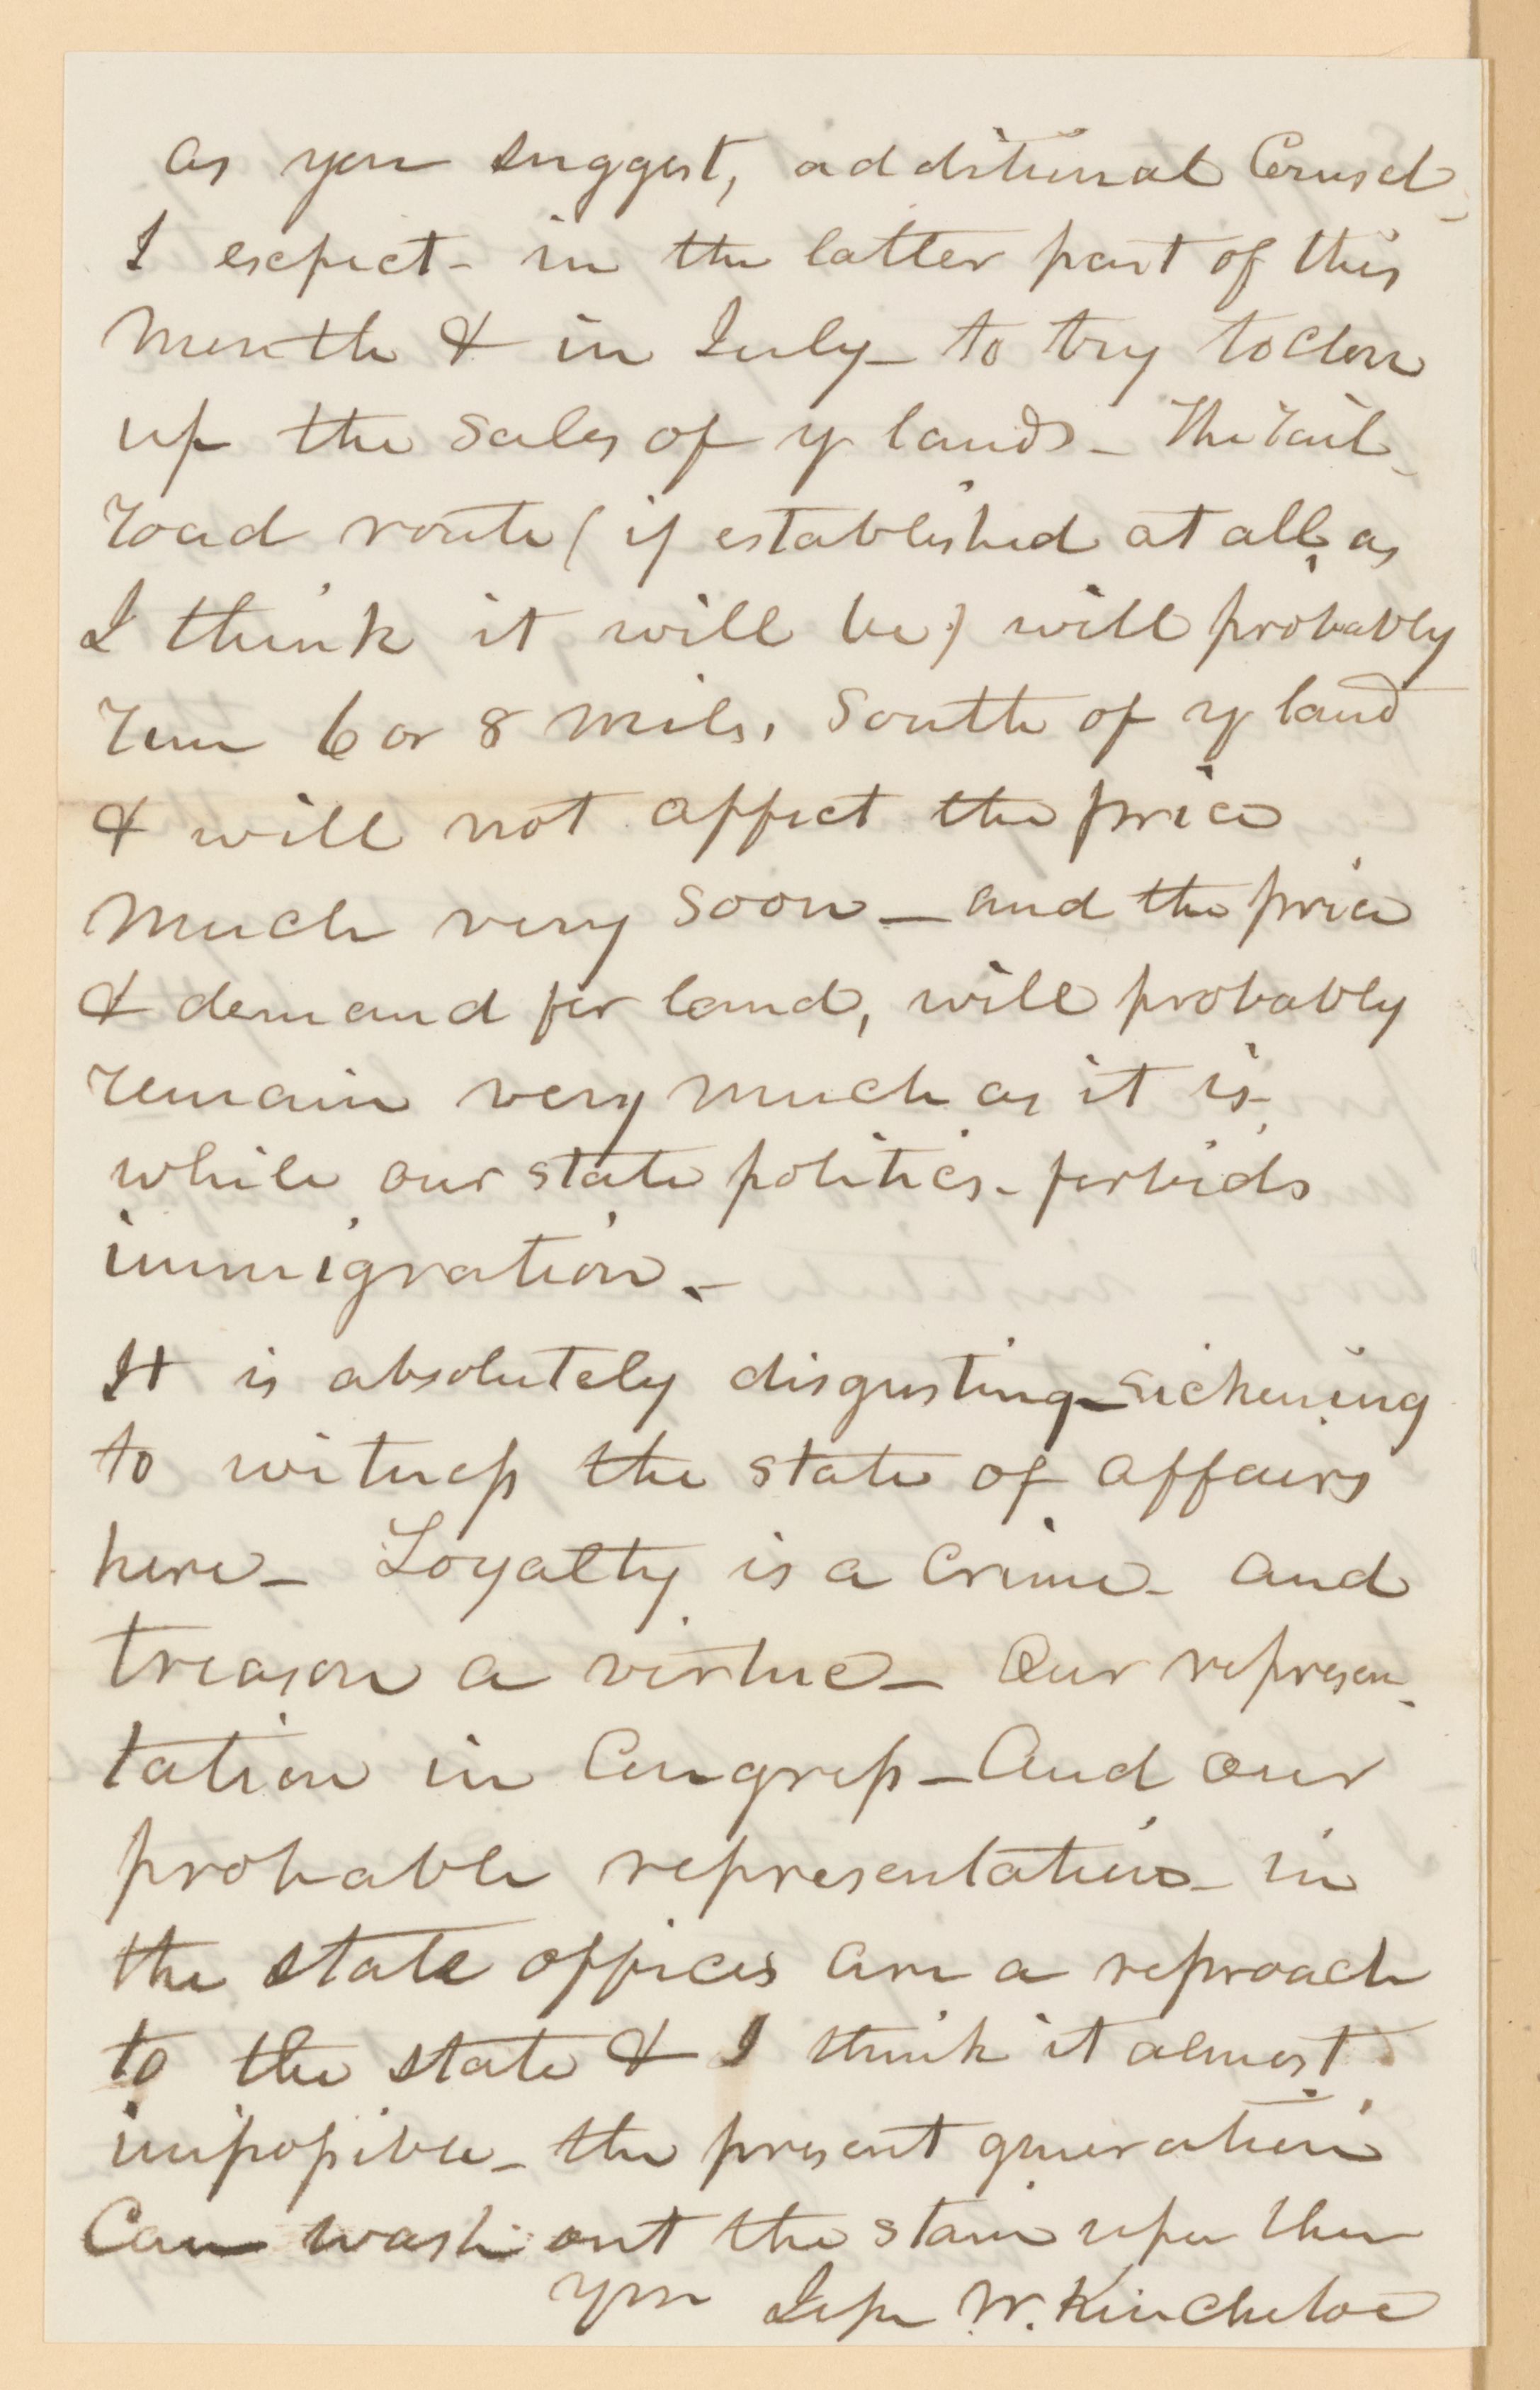 as you suggest, additional Counsel_
I expect - in the latter part of this
month & in July - to try to close
up the sales of yr lands - The rail-
road route (if established at all, as
I think it will be) will probably
run 6 or 8 mils, South of yr land
& will not affect the price
much very soon - and the price
& demand for land, will probably
remain very much as it is,
while our state politics - forbids
immigration. -
It is absolutely disgusting - sickening
to witness the state of affairs
here - Loyalty is a crime - and
treason a virtue - Our represen-
tation in Congress - And our
probable representation - in
the state offices are a reproach
to the state & I think it almost
impossible - the present generation
Can wash out the stain upon them
yrs Jesse W. Kincheloe